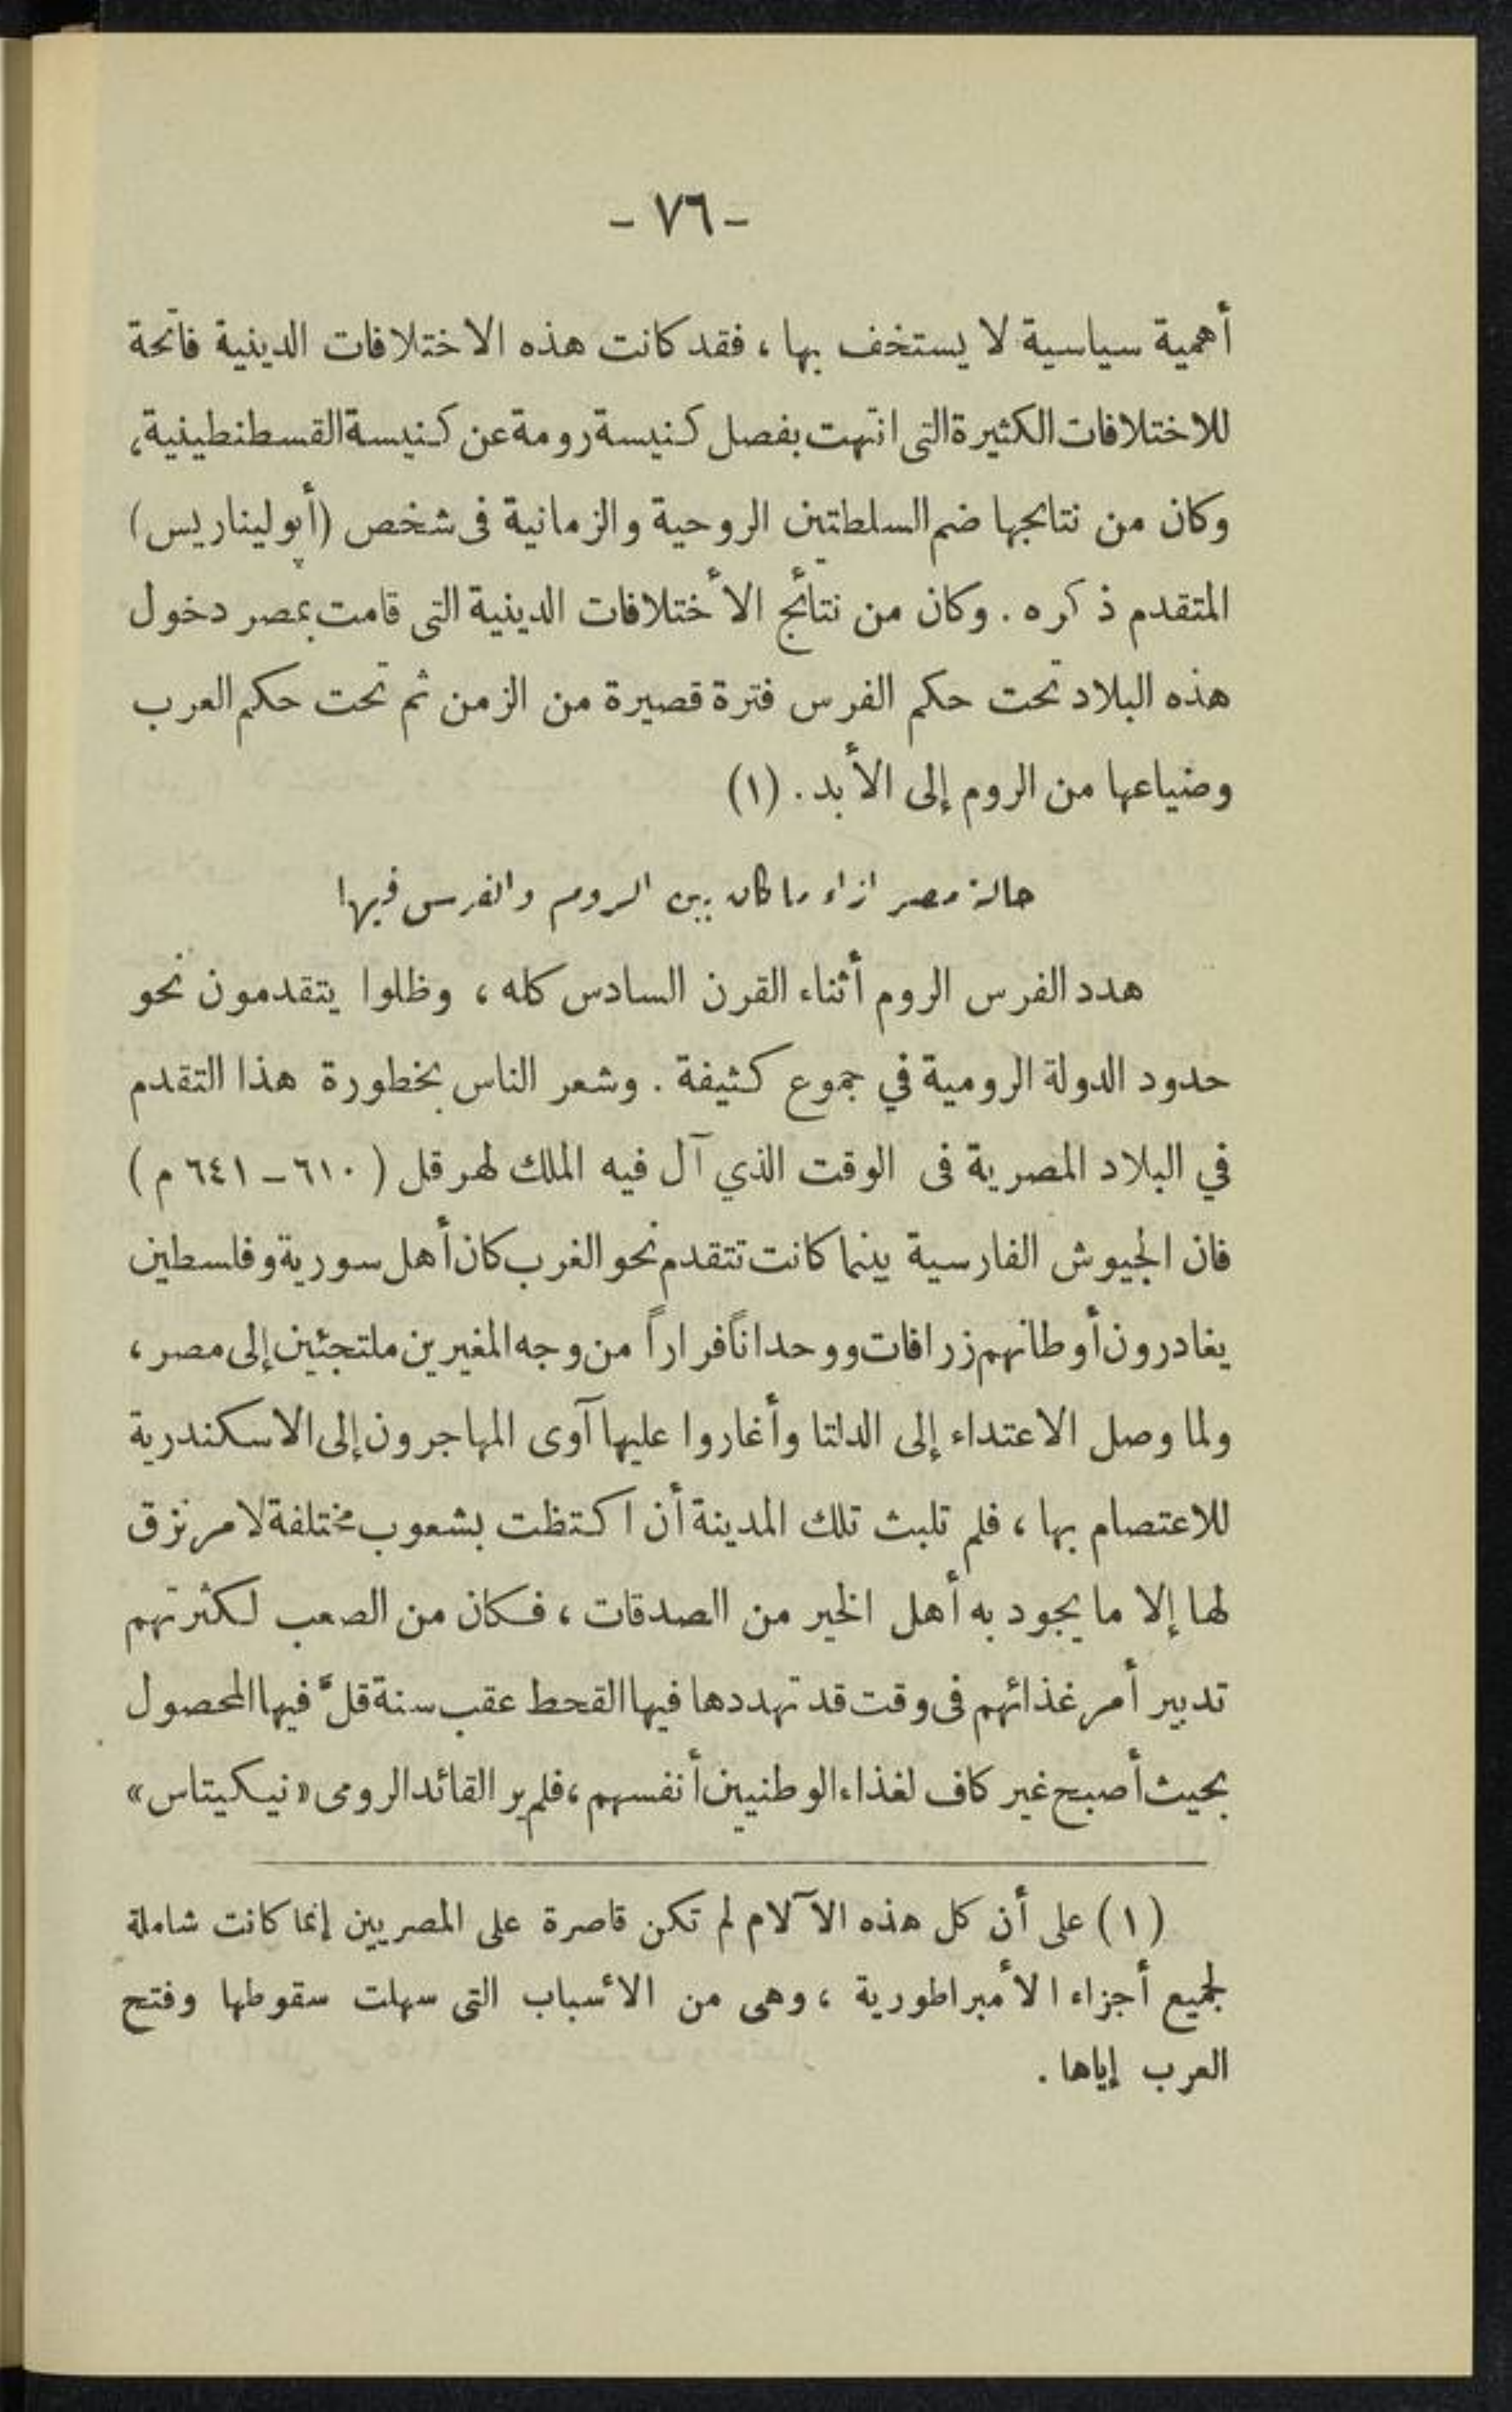 - ٧٦ -
أهمية سياسية لا يستخف بها ، فقد كانت هذه الاختلافات الدينية فاتحة
للاختلافات الكثيرة التى انتهت بفصل كنيسة رومة عن كنيسة القسطنطينية ،
وكان من نتائجها ضم السلطتين الروحية والزمانية فى شخص (أپوليناريس)
المتقدم ذكره . وكان من نتائج الأختلافات الدينية التى قامت بمصر دخول
هذه البلاد تحت حكم الفرس فترة قصيرة من الزمن ثم تحت حكم العرب
وضياعها من الروم إلى الأبد . (١)
حالة مصر ازاء ما كان بين الروم والفرس فيها
هدد الفرس الروم أثناء القرن السادس كله ، وظلوا يتقدمون نحو
حدود الدولة الرومية في جموع كثيفة . وشعر الناس بخطورة هذا التقدم
في البلاد المصرية فى الوقت الذي آل فيه الملك لهرقل ( ٦١٠ - ٦٤١ م )
فان الجيوش الفارسية بينما كانت تتقدم نحو الغرب كان أهل سورية وفلسطين
يغادرون أوطانهم زرافات ووحداناً فراراً من وجه المغيرين ملتجئين إلى مصر ،
ولما وصل الاعتداء إلى الدلتا وأغاروا عليها آوى المهاجرون إلى الاسكندرية
للاعتصام بها ، فلم تلبث تلك المدينة أن اكتظت بشعوب مختلفة لا مرتزق
لها إلا ما يجود به أهل الخير من الصدقات ، فكان من الصعب لكثرتهم
تدبير أمر غذائهم فى وقت قد تهددها فيها القحط عقب سنة قلّ فيها المحصول
بحيث أصبح غير كاف لغذاء الوطنيين أنفسهم ، فلم ير القائد الرومى «نيكيتاس»
(١) على أن كل هذه الآلام لم تكن قاصرة على المصريين إنما كانت شاملة
لجميع أجزاء الأمبراطورية ، وهى من الأسباب التى سهلت سقوطها وفتح
العرب إياها .